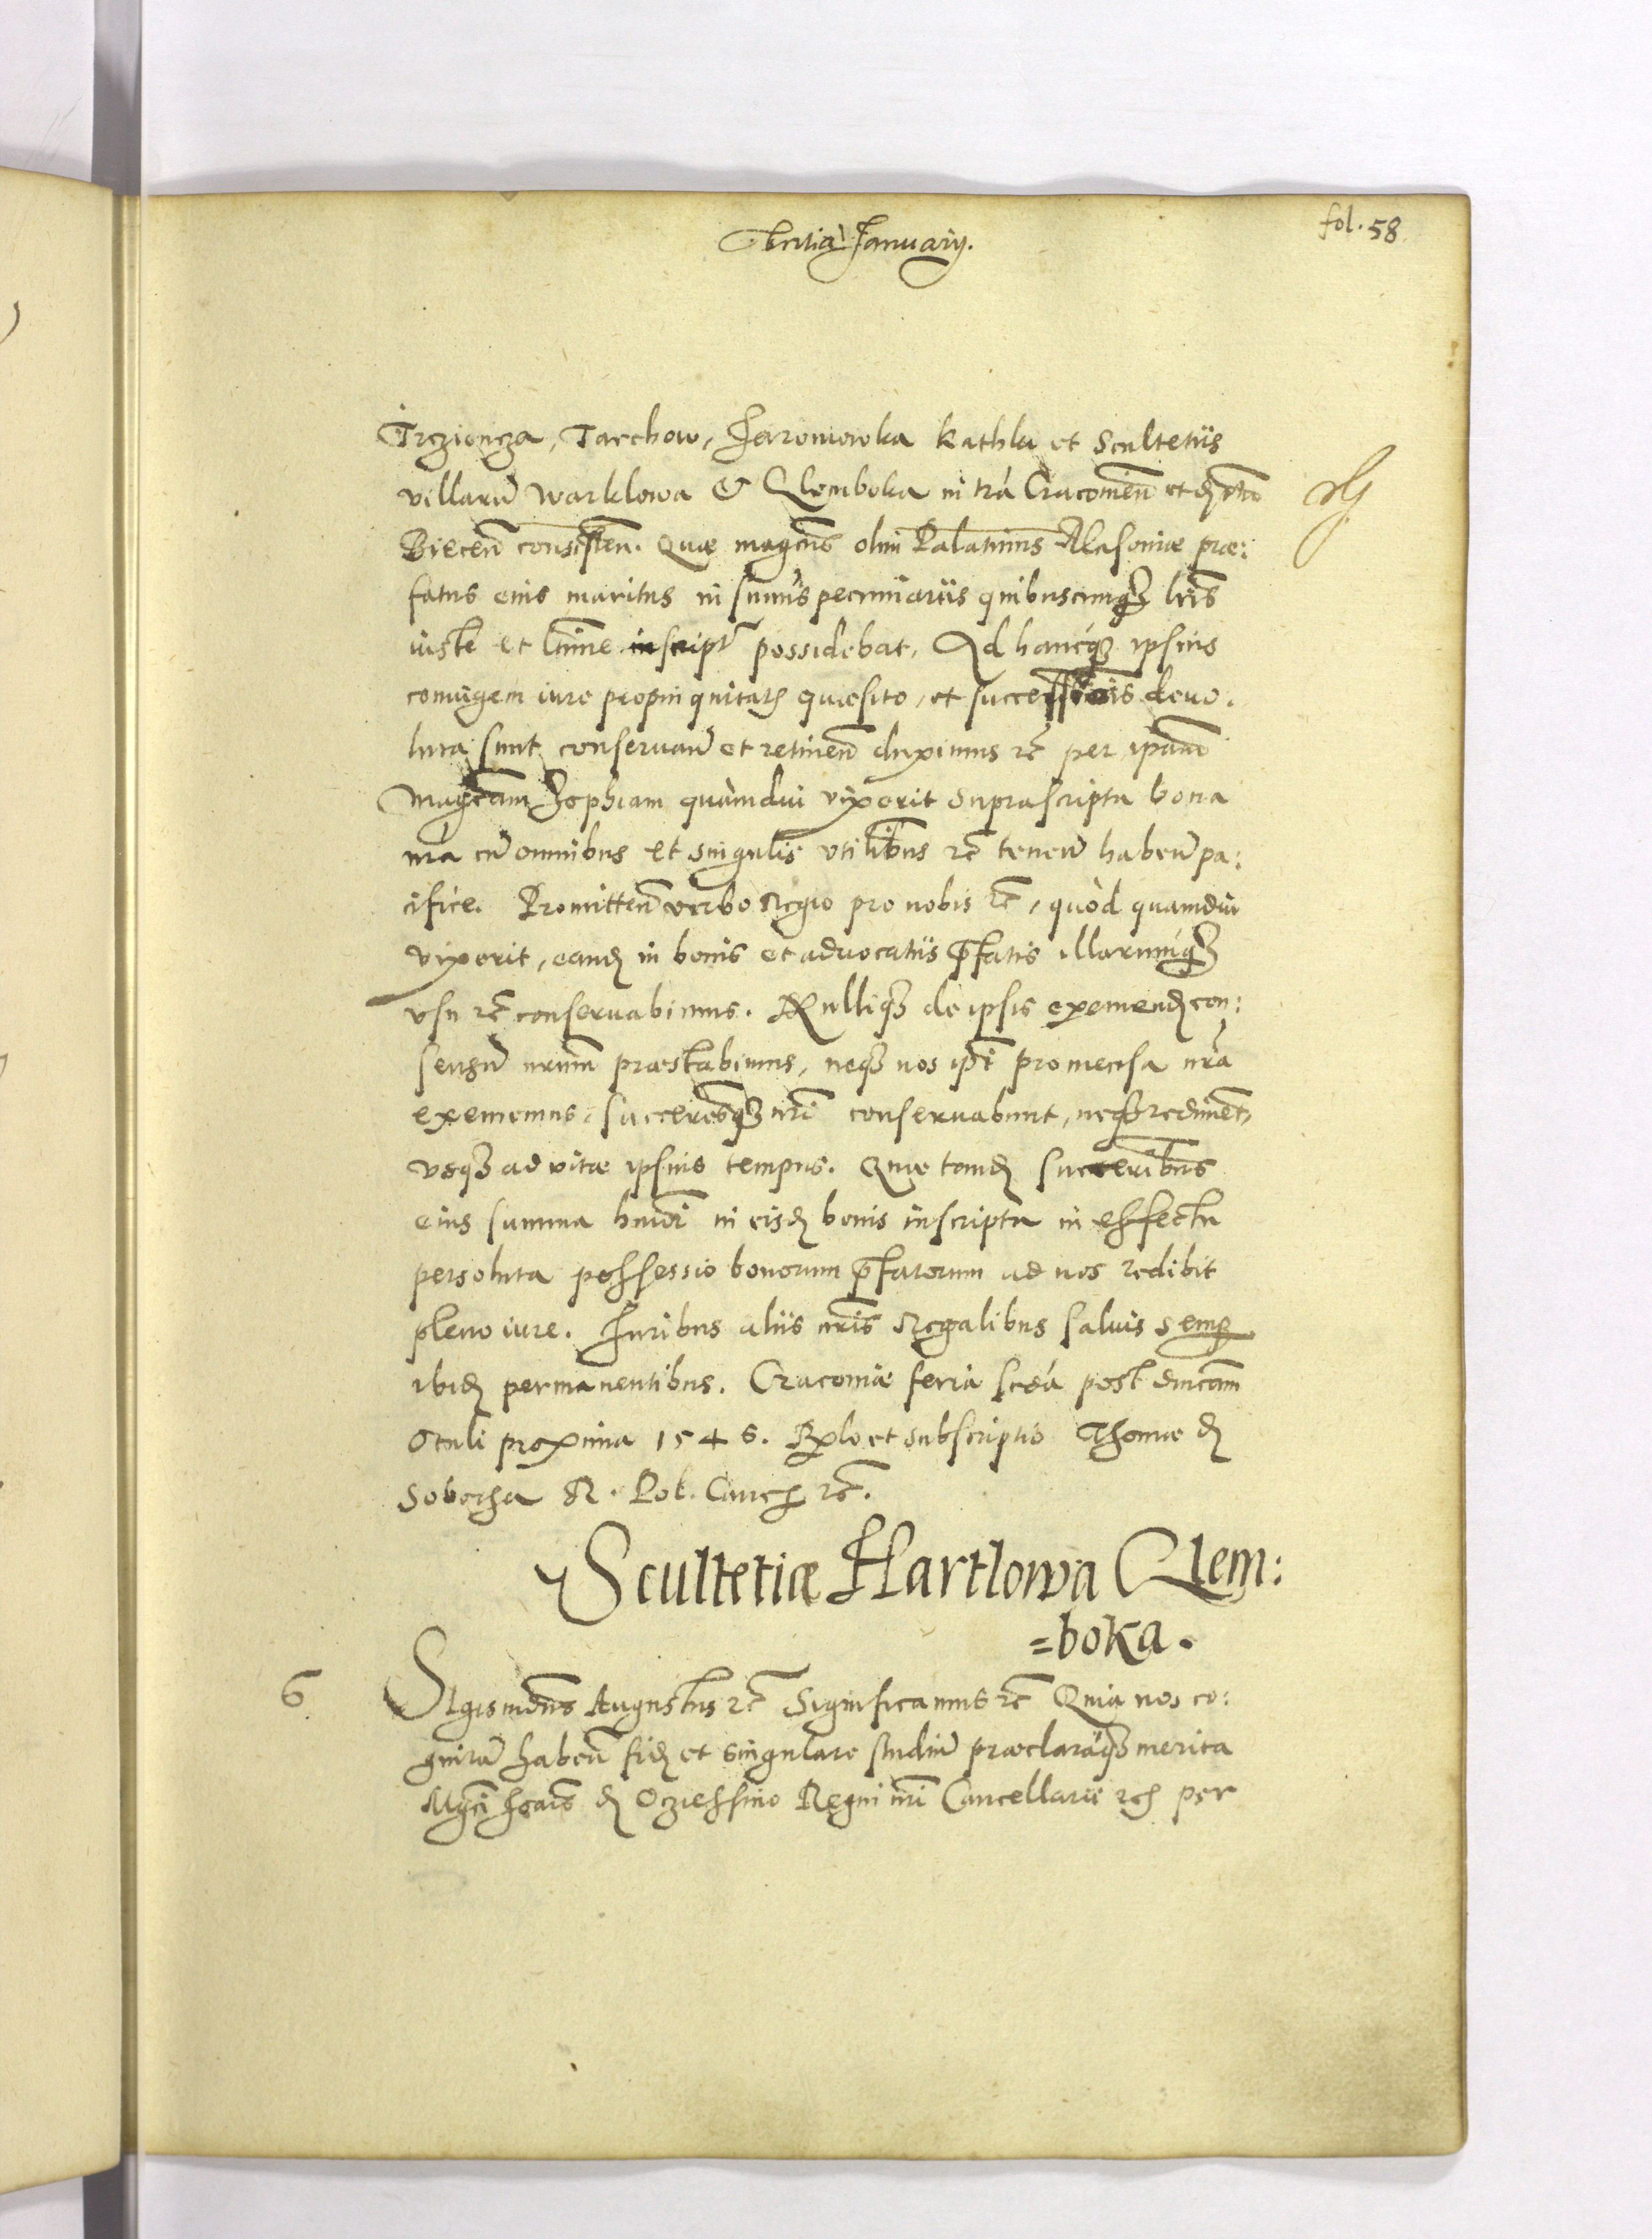 Tertia January.
fol. 58
Trzioncza, Tarchow, Jaromowka Kathlu et Scultetiis
villarū Warklowa & Glemboka in trá Cracovieñ et
Bieceñ consisteñ. Quæ magcus olim Palatinus Masoviæ præ:
fatus eius maritus in summis pecuniariis quibuscunq; lris
iuste et ltime inscript possidebat, Ad hancq; ipsius
coniugem iure propinquitatis quæsito, et successionis devo:
luta sunt conservañ et retineñ duximus rc̄ per ipam
Magcam Zophiam quamdiu vixerit suprascripta bona
nra cū omnibus et singulis utilibus rc̄ teneñ habeñ pa:
cifice. Promitteñ verbo Regio pro nobis rc̄, quòd quamdiu
vixerit, eand in bonis et advocatiis pfatis illarumq;
usu rc̄ conservabimus. Nulliq; de ipsis eximend con:
sensū nrum præstabimus, neq; nos ipi pro mensa nrá
eximemus, succeresq; nri conservabunt, neq; rediment,
usq; ad vitæ ipsius tempus. Quæ tand succeribus
eius summa hmoi in eisd bonis inscripta in effectu
persoluta possessio bonorum pfatorum ad nos redibit
pleno iure. Juribus aliis nris Regalibus salvis semp
ibid permanentibus. Cracoviæ feria scda post dmcam
Oculi proxima 1546. et subscriptio Thomæ d
Soboczka R. Pol. Canc rc̄.
Scultetiæ Hartlowa Glem:
=boka.
6 Sigismdus Augustus rc̄ Significamus rc̄ Quia nos co:
gnitā habeñ fid et singulare studiū præclaraq; merita
Mgci Joais d Ocziessino Regni nri Cancellarii rc̄ per